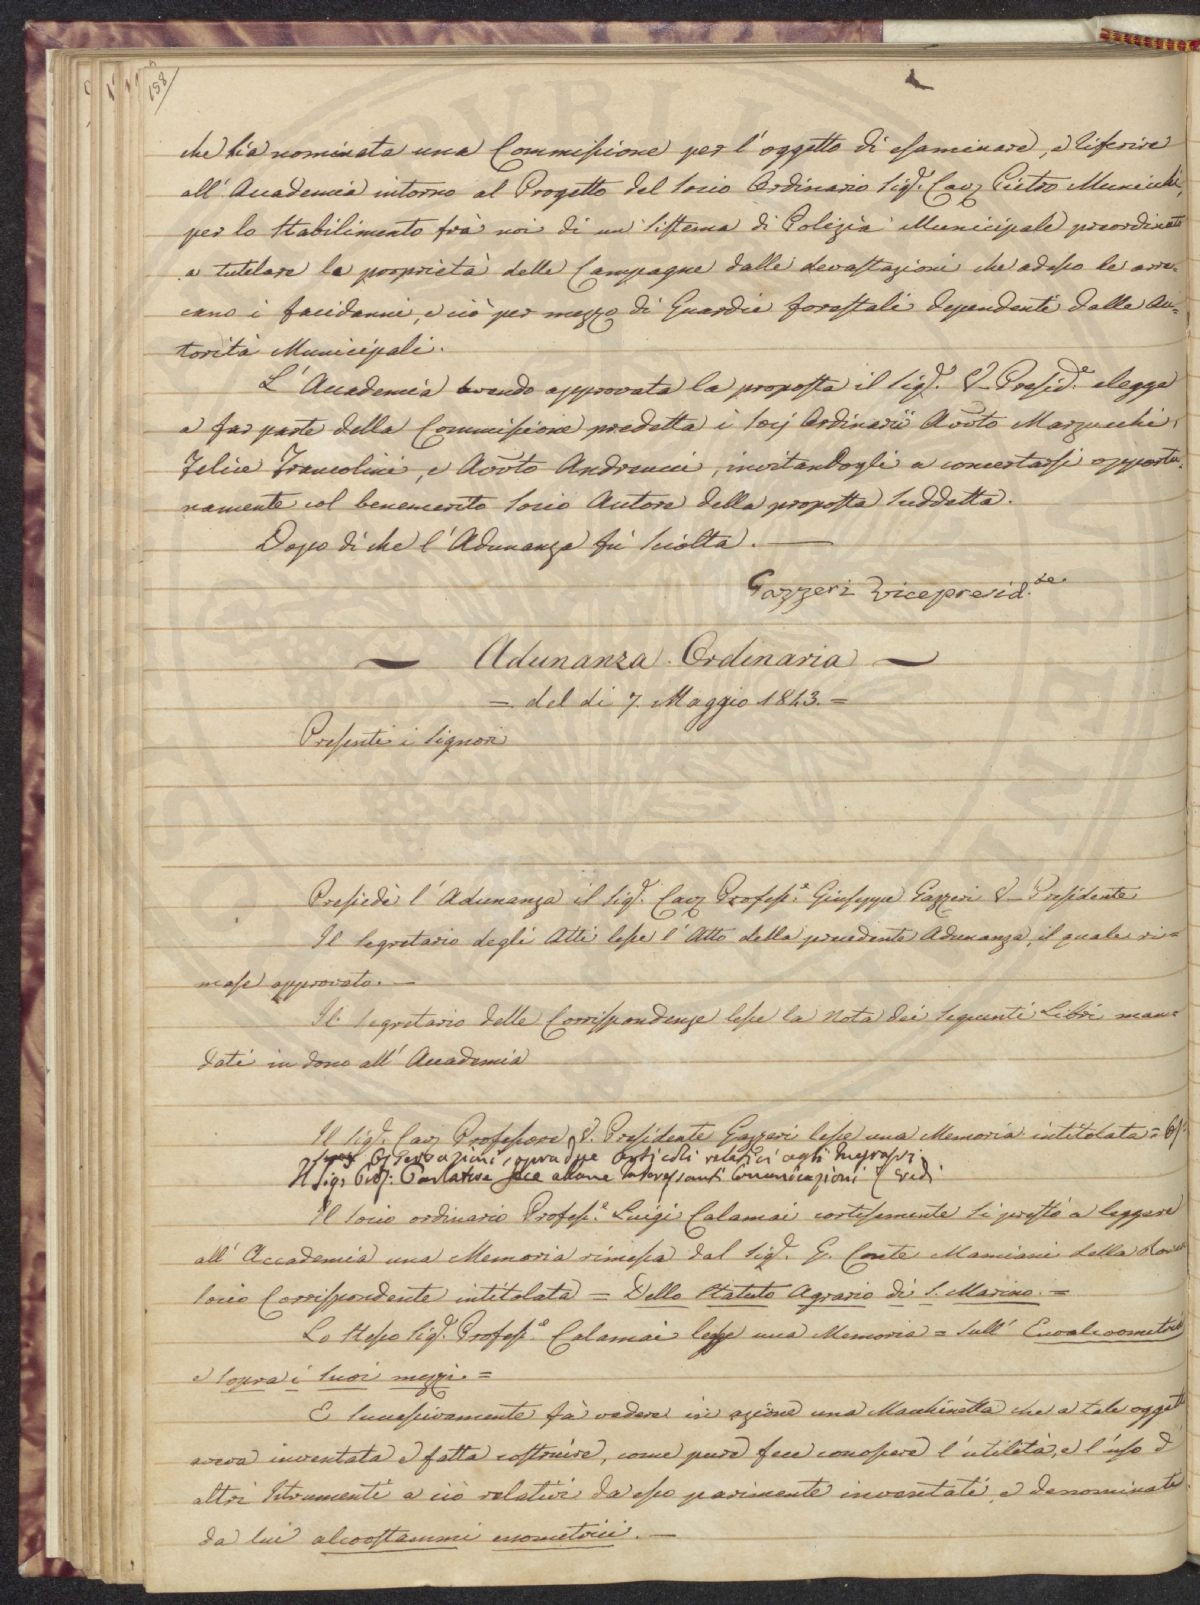 158
che sia nominata una Commissione per l'oggetto di esaminare, e riferire
all'Accademia intorno al Progetto del Socio Ordinario Sig.r Cav. Pietro Municchi,
per lo Stabilimento frà noi di un Sistema di Polizia Municipale preordinato
a tutelare la proprietà delle Campagne dalle devastazioni che adesso le arre=
cano i facidanni, e ciò per mezzo di Guardie forestali dependenti dalle Au=
torità Municipali.
L'Accademia avendo approvata la proposta il Sig.r V. Presid.e elegge
a far parte della Commissione predetta i Socj Ordinarii Avv.to Marzucchi,
Felice Francolini, e Avv.to Andreucci, invitandogli a concertarsi opportu=
namente col benemerito Socio Autore della proposta suddetta.
Dopo di che l'Adunanza fù Sciolta.
Gazzeri vicepresid.te
Adunanza Ordinaria
= del dì 7. Maggio 1843. =
Presenti i Signori
Presiedè l'Adunanza il Sig.r Cav. Profess.e Giuseppe Gazzeri V. Presidente
Il Segretario degli Atti lesse l'Atto della precedente Adunanza, il quale ri=
mase approvato.
Il Segretario delle Corrispondenze lesse la Nota dei Seguenti Libri man=
dati in dono all'Accademia
Il Sig.r Cav. Professore V. Presidente Gazzeri lesse una Memoria intitolata =
Osservazioni sopra due articoli relativi agli Ingrassi.
Il Sig. Prof: Parlatore fece alcune interessanti Comunicazioni (Vedi
Il Socio ordinario Profess.e Luigi Calamai cortesemente si prestò a leggere
all'Accademia una Memoria rimessa dal Sig.r G. Conte Mamiani della
Socio Corrispondente intitolata = Dello Statuto Agrario di S. Marino. =
Lo Stesso Sig.r Profess.e Calamai lesse una Memoria = Sull'
e sopra i suoi mezzi. =
E Successivamente fà vedere in azione una Macchinetta che a tale oggetto
aveva inventata e fatta costruire, come pure fece conoscere l'utilità, e l'uso d'
altri Istrumenti a ciò relativi da esso parimente inventati, e denominati
da lui alcoostammi enometrici.